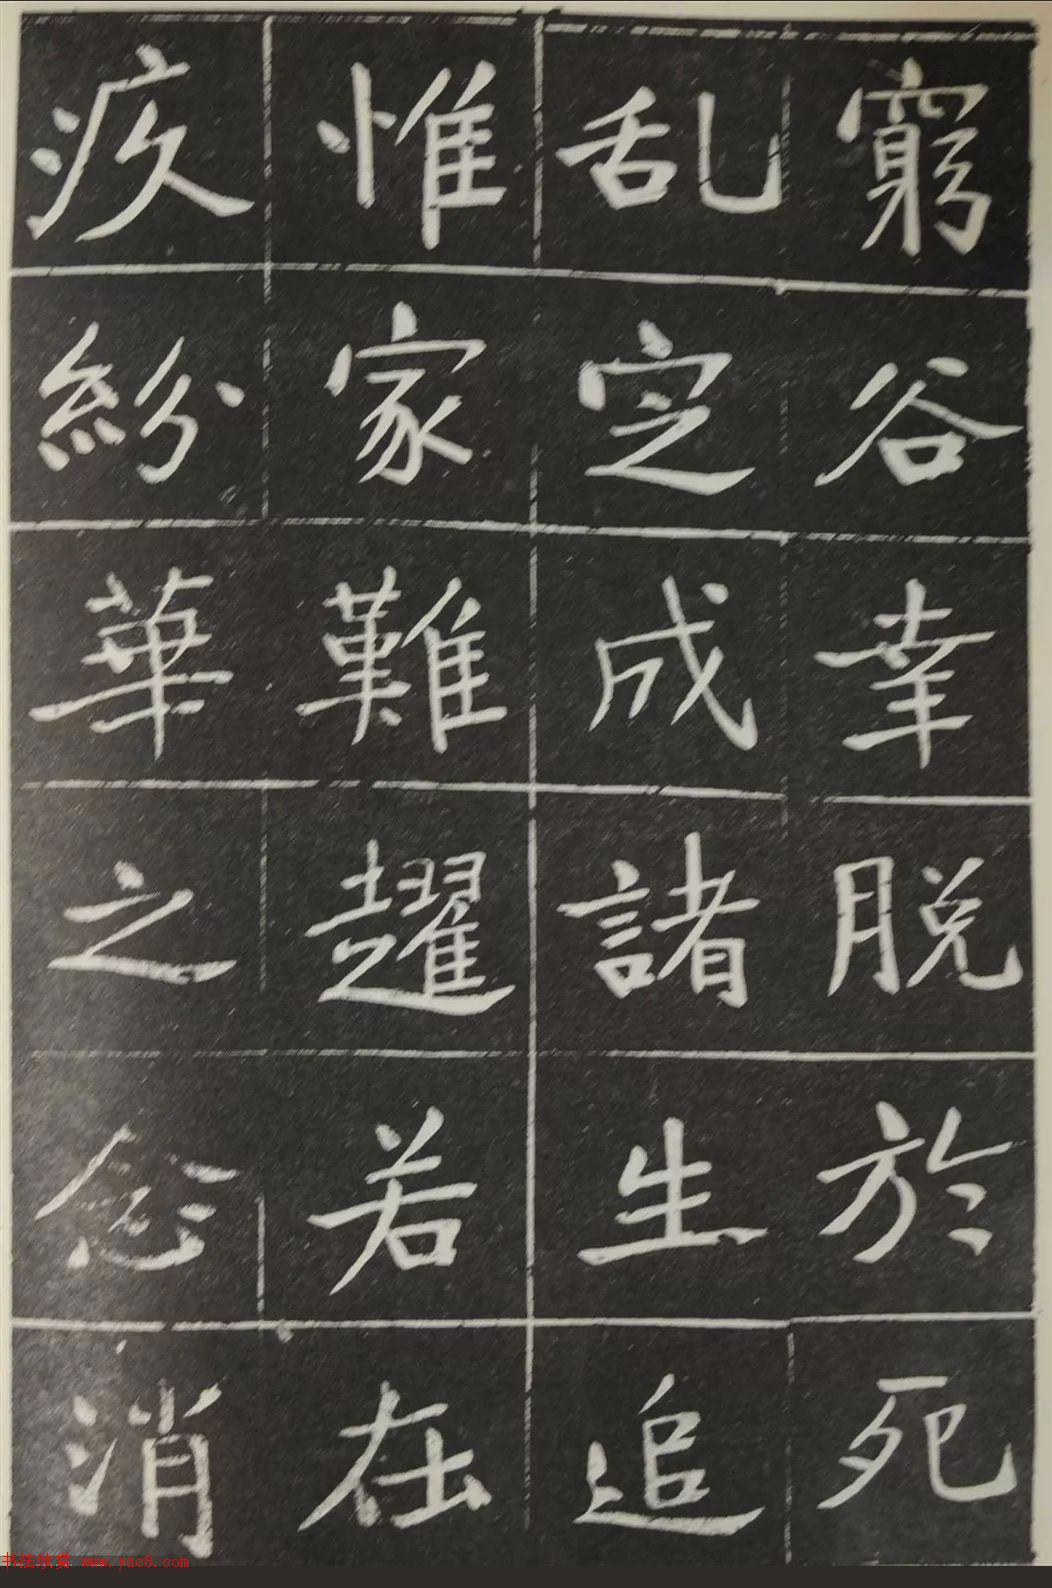 窮谷幸脱於死
乱定成諸生追
惟家難趯若在
疚紛華之念消
书法欣赏 www.yac8.com